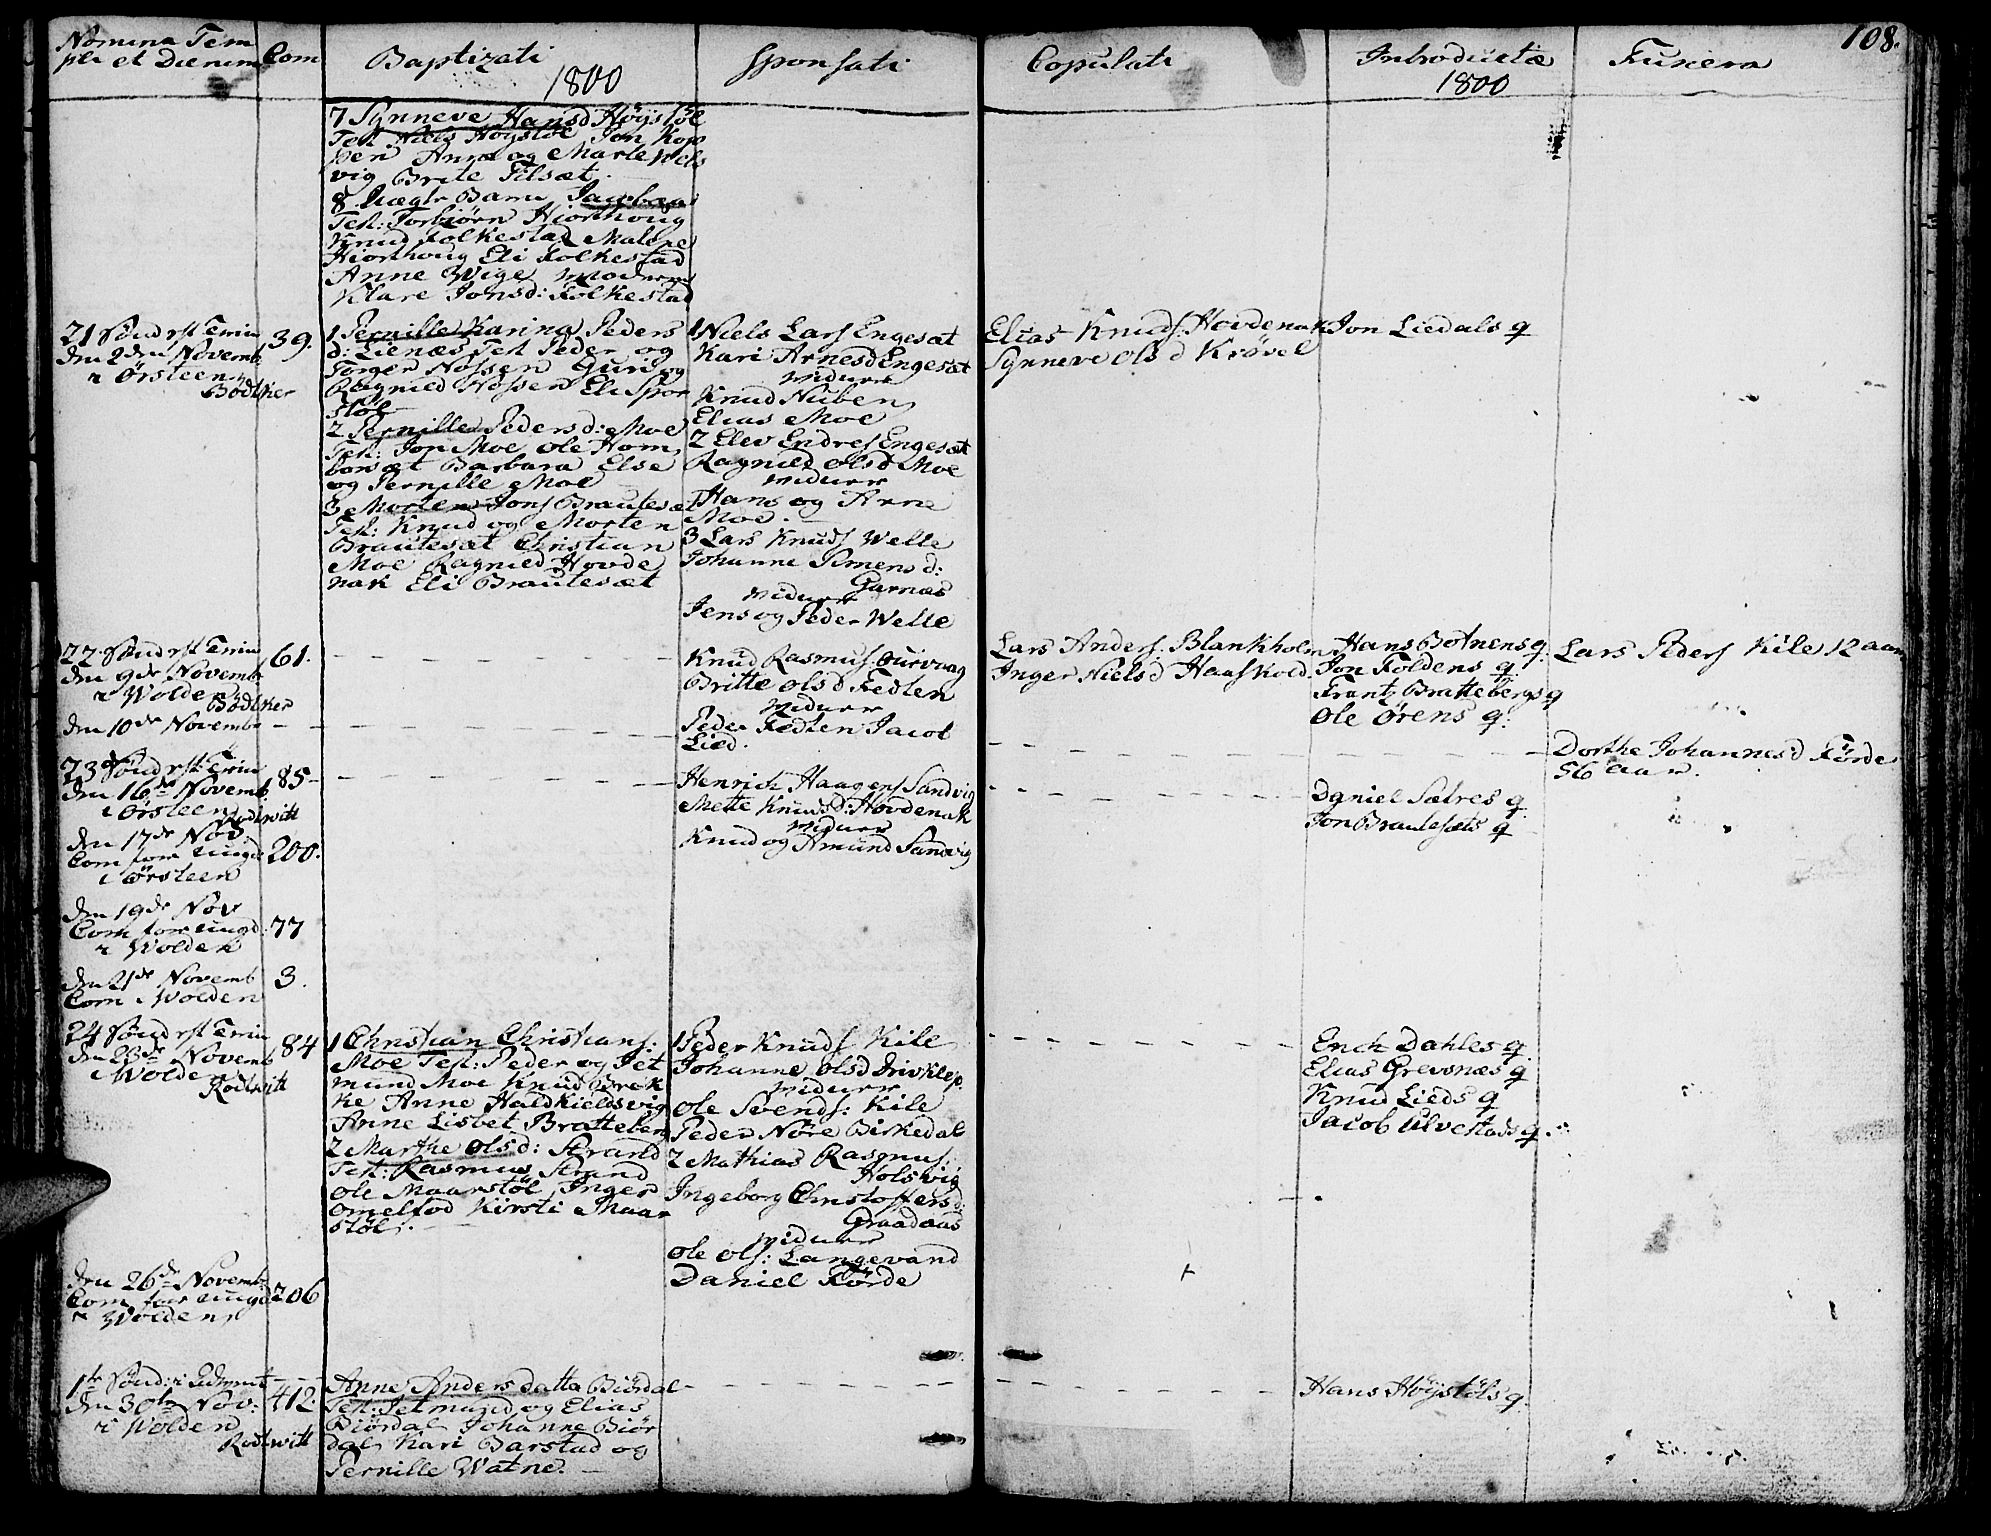 108.
Nomina Tem
pli et Dierum
Com
Baptizati
1800
Sponsati
Copulati
Introductæ
1800
Funera
7 Synneve Hansd Höÿstöl
Test Niels Höÿstöl Jon Kop
pen Anne og Marte Wels
vig Brite Tilsæt.
8. Uægte Barn Jacob
Test: Torbiörn Hiorthoug
Knud Folkestad Malene
Hiorthoug Eli Folkestad
Anne Wige Moderen
Klare Jonsd: Folkestad
21 Sönd. p. st Trin
den 2den Novemb
i Örsteen
Bödtker
39.
1 Pernille Karina Peders
d: Lienæs Test Peder og
Torger Nossen Guri og
Ragnild Nossen Eli Spor
stöl
2 Pernille Pedersd: Moe
Test: Jon Moe Ole Hom
bonsæt Barbara Else
og Pernille Moe
3 Morten Jons Brautesæt
Test: Knud og Morten
Brautesæt Christian
Moe Ragnild Hovde
nak Eli Brautesæt
1 Niels Lars Engesæt
Kari Arnesd Engesæt
viduer
Knud Nuben
Elias Moe
2 Elev Endres Engesæt
Ragnild Olsd Moe
viduer
Hans og Arne
Moe.
3 Lars Knuds Welle
Johanne Simens d:
Garnæs
viduer
Jens og Peder Welle
Elias Knuds: Hovdenak
Synneve Ols d Krövel
Jon Liedals q
22. Sönd p st Trin
den 9de Novemb
i Wolden
Bödtker
61.
Knud Rasmus Ourvaag
Britte Olsd Fedten
viduer
Peder Fedten Jacob
Lied.
Lars Anders. Blankholm
Inger Niels d Haaskold.
Hans Botnens q.
Jon Foldens q
Frantz Brattebergs q
Ole Örens q.
Lars Peders Kile 12 aar
den 10de Novemb
Dorthe Johannesd Förde
56 aar.
23 Sönd p st Trin
den 16de Novemb
i Örsteen
Rodtwitt
85
Henrich Haagens Sandvig
Mette Knudsd: Hovdenak
viduer
Knud og Amund Sandvig
Daniel Sætres q
Jon Brautesæts q
den 17de Nov
Com for ungd
i Örsteen
200.
den 19de Nov
Com for ungd:
i Wolden
77
den 21de Novemb
Com i Wolden
3.
24 Sönd p st Trin
den 23de Novemb
i Wolden
Rodtwitt
84
1 Christian Christians:
Moe Test: Peder og Jet
mund Moe Knud Brek
ke Anne Haldkieldsvig
Anne Lisbet Bratteberg
2 Marthe Olsd: Strand
Test: Rasmus Strand
Ole Maarstöl Inger
Omelfod Kirsti Maar
stöl.
1 Peder Knuds Kile
Johanne Olsd Drivklep.
viduer
Ole Svends: Kile
Peder Nöre Birkedal
2 Mathias Rasmus.
Holsvig
Ingeborg Christoffersd:
Graadaas
viduer
Ole Ols: Langevand
Daniel Förde
Erich Dahles q
Elias Grevsnæs q
Knud Lieds q
Jacob Ulvestads q.
den 26de Novemb
Com for ungd
i Wolden
206
1te Sönd: i Advent
den 30te Nov:
i Wolden
Rodtwitt
412
Anne Anders datter Biördal
Test: Jetmund og Elias
Biördal Johanne Biör
dal Kari Barstad og
Pernille Watne.
Hans Höÿstöls q.